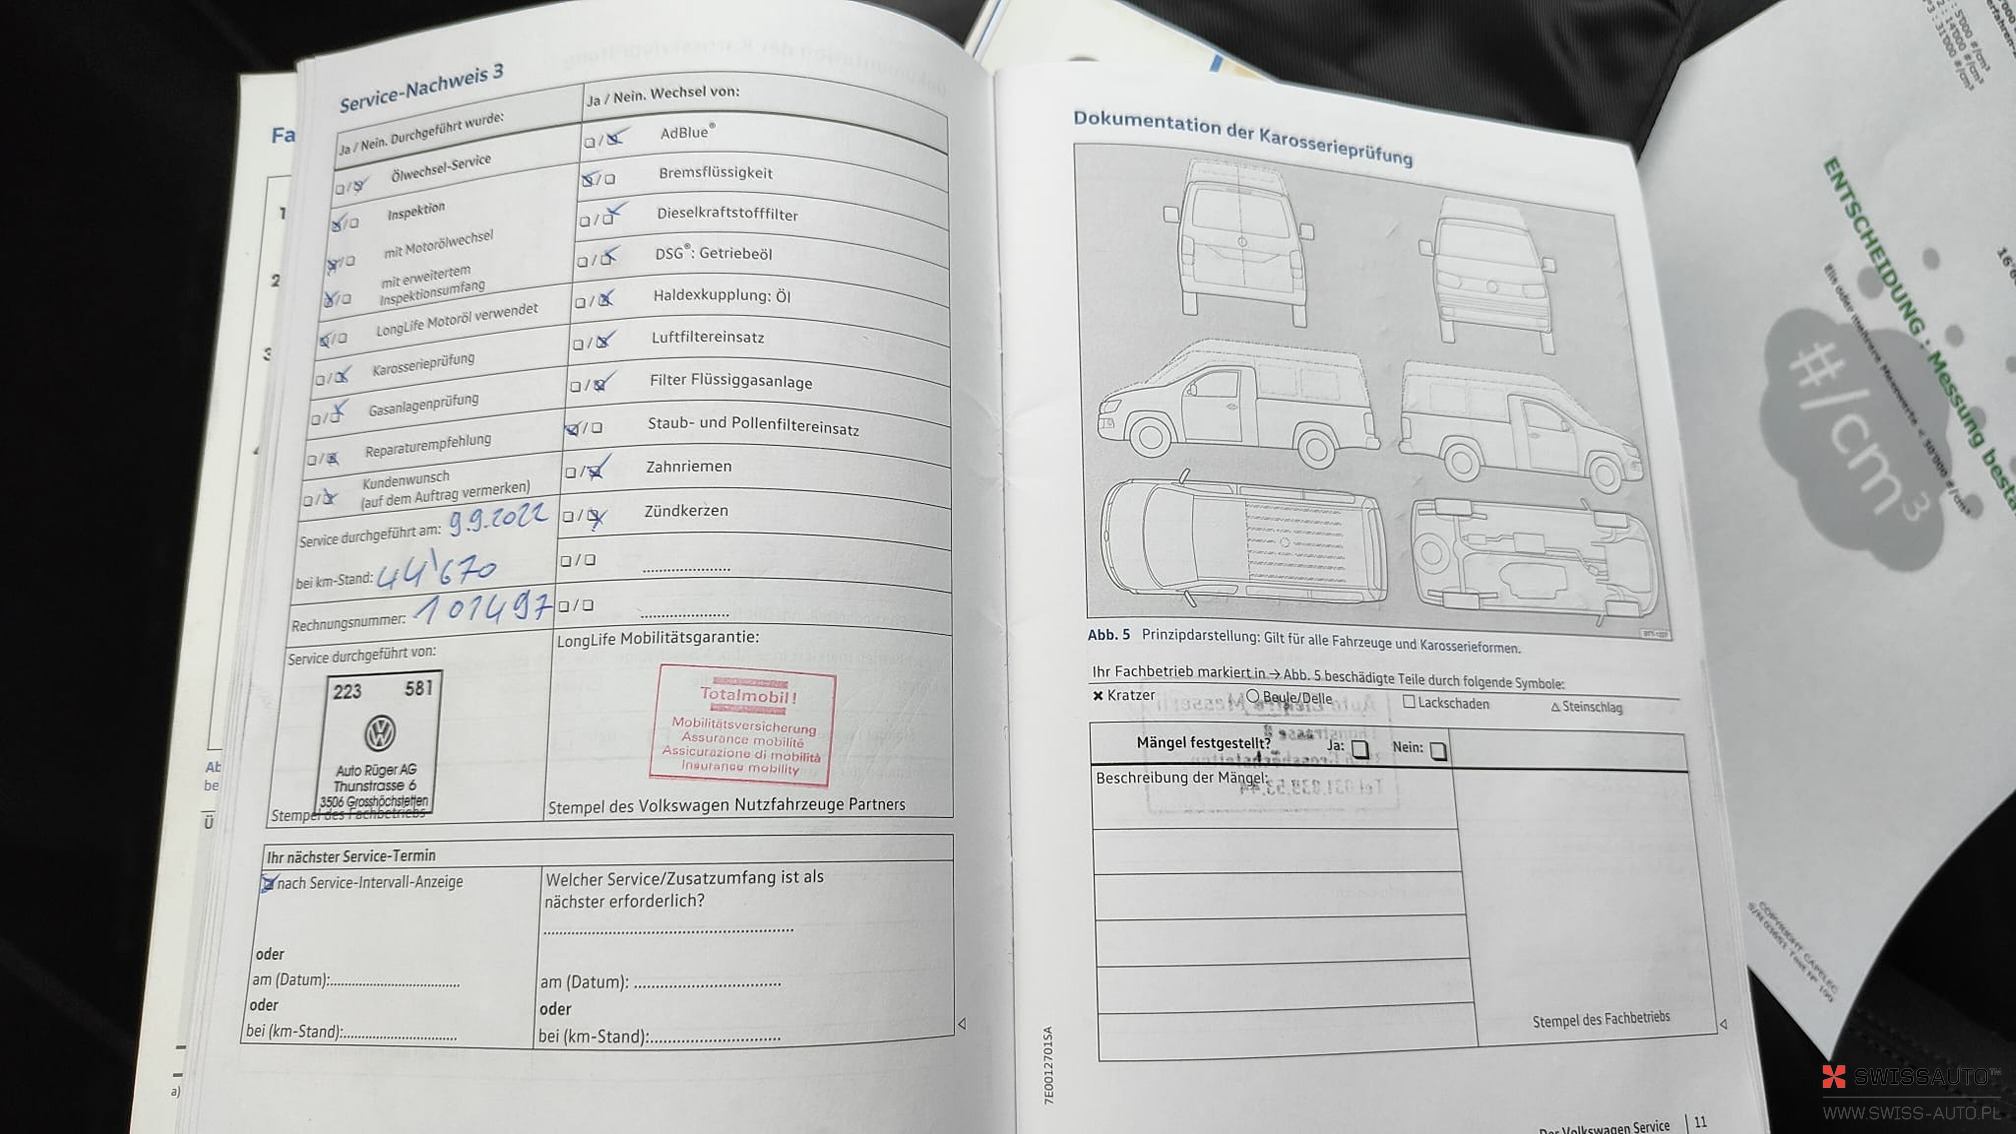 Service-Nachweis 3
Ja / Nein. Durchgeführt wurde:
Ölwechsel-Service
Inspektion
mit Motorölwechsel
mit erweitertem
Inspektionsumfang
LongLife Motoröl verwendet
Karosserieprüfung
Gasanlagenprüfung
Reparaturempfehlung
Kundenwunsch
(auf dem Auftrag vermerken)
Service durchgeführt am: 9.9.2022
bei km-Stand: 44'670
Rechnungsnummer: 101497
Ja / Nein. Wechsel von:
AdBlue®
Bremsflüssigkeit
Dieselkraftstofffilter
DSG®: Getriebeöl
Haldexkupplung: Öl
Luftfiltereinsatz
Filter Flüssiggasanlage
Staub- und Pollenfiltereinsatz
Zahnriemen
Zündkerzen
Service durchgeführt von:
223 581
Auto Rüger AG
Thunstrasse 6
3506 Grosshöchstetten
Stempel des Fachbetriebs
LongLife Mobilitätsgarantie:
Totalmobil!
Mobilitätsversicherung
Assurance mobilité
Assicurazione di mobilità
Insurance mobility
Stempel des Volkswagen Nutzfahrzeuge Partners
Ihr nächster Service-Termin
nach Service-Intervall-Anzeige
oder
am (Datum):
oder
bei (km-Stand):
Welcher Service/Zusatzumfang ist als
nächster erforderlich?
am (Datum):
oder
bei (km-Stand):
Dokumentation der Karosserieprüfung
Abb. 5 Prinzipdarstellung: Gilt für alle Fahrzeuge und Karosserieformen.
Ihr Fachbetrieb markiert in → Abb. 5 beschädigte Teile durch folgende Symbole:
Kratzer Beule/Delle Lackschaden Steinschlag
Mängel festgestellt? Ja: Nein:
Beschreibung der Mängel:
Stempel des Fachbetriebs
7E0012701SA
Der Volkswagen Service | 11
Fa
1
2
3
Ab
be
Ü
a)
ENTSCHEIDUNG : Messung besta
#/cm³
COPYRIGHT CAPELEC
SWISSAUTO™
WWW.SWISS-AUTO.PL